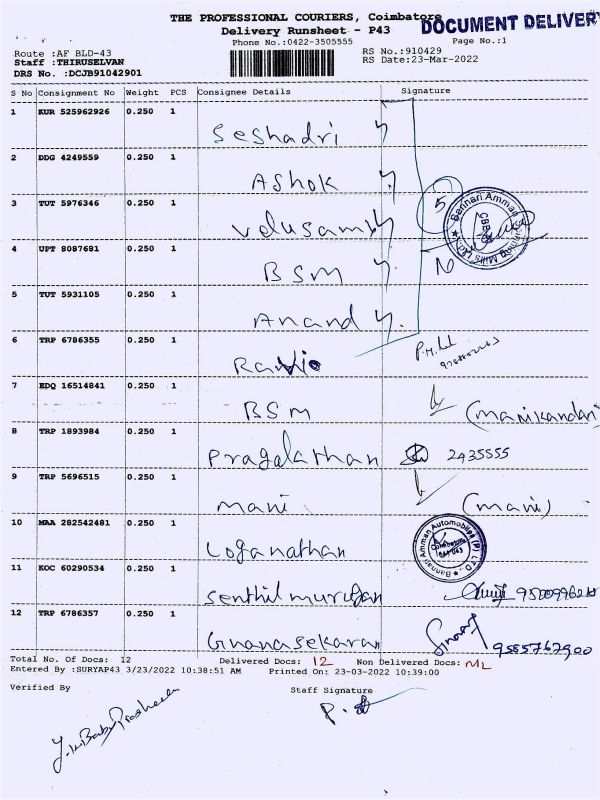 THE PROFESSIONAL COURIERS, Coimbatore
DOCUMENT DELIVERY
Delivery Runsheet - P43
Phone No.:0422-3505555
Page No.:1
Route :AF BLD-43
RS No.:910429
Staff :THIRUSELVAN
RS Date:23-Mar-2022
DRS No. :DCJB91042901
S No Consignment No Weight PCS Consignee Details Signature
1 KUR 525962926 0.250 1 Seshadri
2 DDG 4249559 0.250 1 Ashok
3 TUT 5976346 0.250 1 Velusamy
5
4 UPT 8087681 0.250 1 BSM
5 TUT 5931105 0.250 1 Anand
6 TRP 6786355 0.250 1
7 EDQ 16514841 0.250 1 BSM (Manikandan)
8 TRP 1893984 0.250 1 Pragalathan 2435555
9 TRP 5696515 0.250 1 Mani (Mani)
10 MAA 282542481 0.250 1 Loganathan
Bannari Amman Automobiles (P) LTD.,
Coimbatore
641 043
11 KOC 60290534 0.250 1 Senthil murugan
12 TRP 6786357 0.250 1 Gnanasekaran 9585767900
Total No. Of Docs: 12 Delivered Docs: 12 Non Delivered Docs: NIL
Entered By :SURYAP43 3/23/2022 10:38:51 AM Printed On: 23-03-2022 10:39:00
Verified By Staff Signature